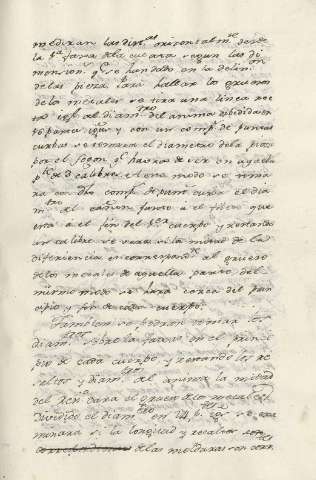 mediran las dist.as orisontalm.te desde
la p.a faxa de la culata segun las di
mension.s q.e se han dado en la delin.on
de las piezas para hallar los gruesos
de los metales se tira una linea rec
ta igual al diam.tro del anima dividida en
16 partes igua.s y con un comp.s de puntas
curbas se tomara el diametro de la pieza
por el fogon q.e havra de ver en aquella
p.te de calibre de este modo se toma
ra con dho comp.s de punt.s curba el dia
m.tro al cañon junto a el filete que
esta a el fin del p.er cuerpo y restando
un calibre se vera si la mitad de la
diferiencia es corresp.te al grueso
de los metales de aquella parte, del
mismo modo se hara cerca del prin
cipio y fin de cada cuerpo.
Tambien se podran tomar los
diam.tros sobre las faxas en el princi
pio de cada cuerpo y restando los re
saltos y diam.tro del anima la mitad
del res.to dara el grueso de los metal.s
Dividido el diam.tro en 14 p.tes ig.s se exa
minara si la longitud y resaltos son
de las molduras son corr.s